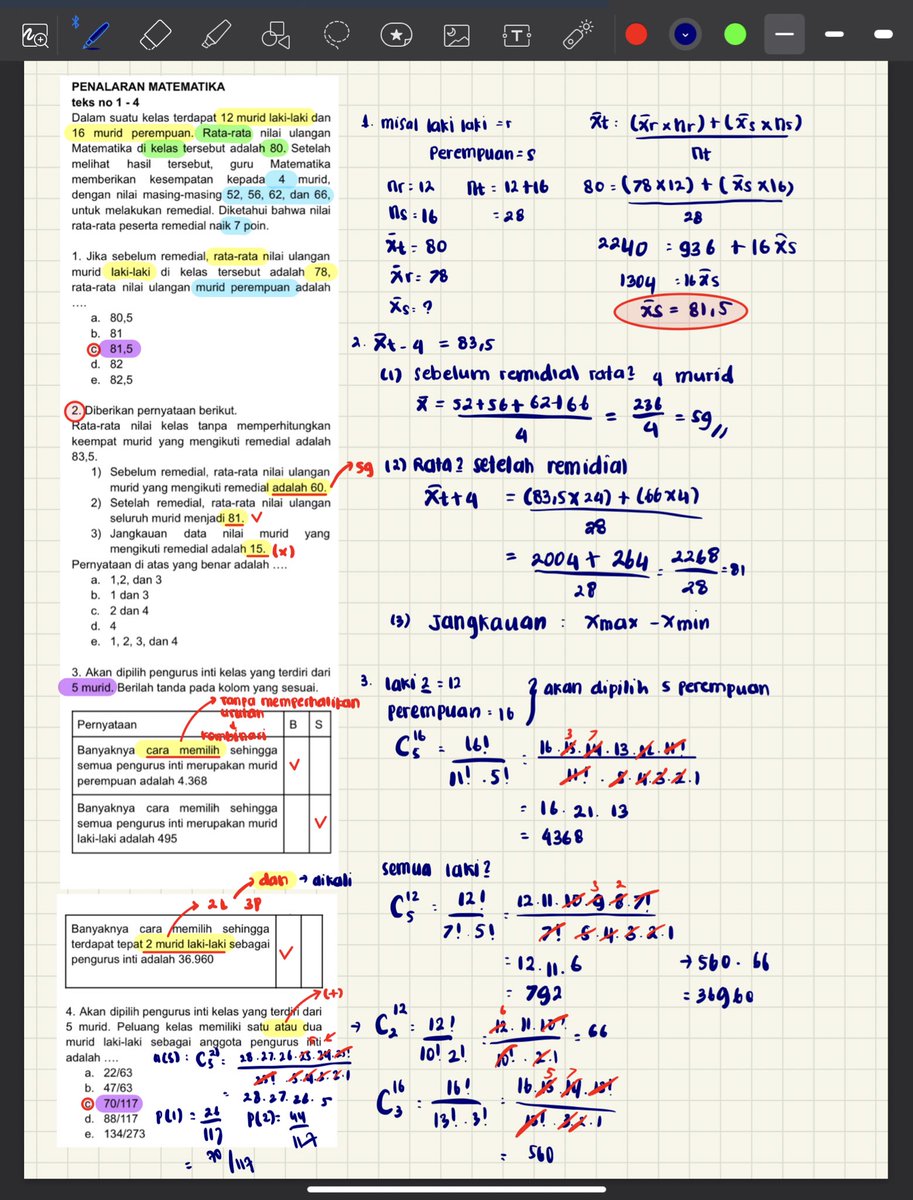 PENALARAN MATEMATIKA
teks no 1 - 4
Dalam suatu kelas terdapat 12 murid laki-laki dan
16 murid perempuan. Rata-rata nilai ulangan
Matematika di kelas tersebut adalah 80. Setelah
melihat hasil tersebut, guru Matematika
memberikan kesempatan kepada 4 murid,
dengan nilai masing-masing 52, 56, 62, dan 66,
untuk melakukan remedial. Diketahui bahwa nilai
rata-rata peserta remedial naik 7 poin.
1. Jika sebelum remedial, rata-rata nilai ulangan
murid laki-laki di kelas tersebut adalah 78,
rata-rata nilai ulangan murid perempuan adalah
....
a. 80,5
b. 81
c. 81,5
d. 82
e. 82,5
2. Diberikan pernyataan berikut.
Rata-rata nilai kelas tanpa memperhitungkan
keempat murid yang mengikuti remedial adalah
83,5.
1) Sebelum remedial, rata-rata nilai ulangan
murid yang mengikuti remedial adalah 60.
2) Setelah remedial, rata-rata nilai ulangan
seluruh murid menjadi 81. ✓
3) Jangkauan data nilai murid yang
mengikuti remedial adalah 15. (x)
Pernyataan di atas yang benar adalah ....
a. 1,2, dan 3
b. 1 dan 3
c. 2 dan 4
d. 4
e. 1, 2, 3, dan 4
3. Akan dipilih pengurus inti kelas yang terdiri dari
5 murid. Berilah tanda pada kolom yang sesuai.
tanpa memperhatikan
urutan
kombinasi
Pernyataan B S
Banyaknya cara memilih sehingga
semua pengurus inti merupakan murid
perempuan adalah 4.368 ✓
Banyaknya cara memilih sehingga
semua pengurus inti merupakan murid
laki-laki adalah 495 ✓
dan → dikali
2L 3P
Banyaknya cara memilih sehingga
terdapat tepat 2 murid laki-laki sebagai
pengurus inti adalah 36.960 ✓
(+)
4. Akan dipilih pengurus inti kelas yang terdiri dari
5 murid. Peluang kelas memiliki satu atau dua
murid laki-laki sebagai anggota pengurus inti
adalah ....
a. 22/63
b. 47/63
c. 70/117
d. 88/117
e. 134/273
28.27.26.25.24.23!
23! 5.4.3.2.1
= 28.27.26.5
P(1) = 26/117 P(2) = 44/117
= 70/117
1. misal laki laki = r
Perempuan = s
nr = 12 nt = 12+16
ns = 16 = 28
x̄t = 80
x̄r = 78
x̄s = ?
x̄t : (x̄r × nr) + (x̄s × ns)
nt
80 = (78×12) + (x̄s×16)
28
2240 = 936 + 16x̄s
1304 = 16x̄s
x̄s = 81,5
2. x̄t-4 = 83,5
(1) sebelum remidial rata2 4 murid
x̄ = 52+56+62+66 / 4 = 236/4 = 59,,
59
(2) Rata2 setelah remidial
x̄t+4 = (83,5×24) + (66×4)
28
= 2004 + 264 / 28 = 2268/28 = 81
(3) Jangkauan : xmax - xmin
3. laki2 = 12
perempuan = 16
akan dipilih 5 perempuan
C 16 5 = 16! / 11! . 5! = 16.15.14.13.12.11! / 11! . 5.4.3.2.1
3 7
= 16. 21. 13
= 4368
semua laki2
C 12 5 = 12! / 7! . 5! = 12.11.10.9.8.7! / 7! 5.4.3.2.1
3 2
= 12.11.6
= 792
→ 560 . 66
= 36960
→ C 12 2 = 12! / 10! 2! = 12.11.10! / 10! . 2.1 = 66
6
C 16 3 = 16! / 13! . 3! = 16.15.14.13! / 13! . 3.2.1
5 7
= 560